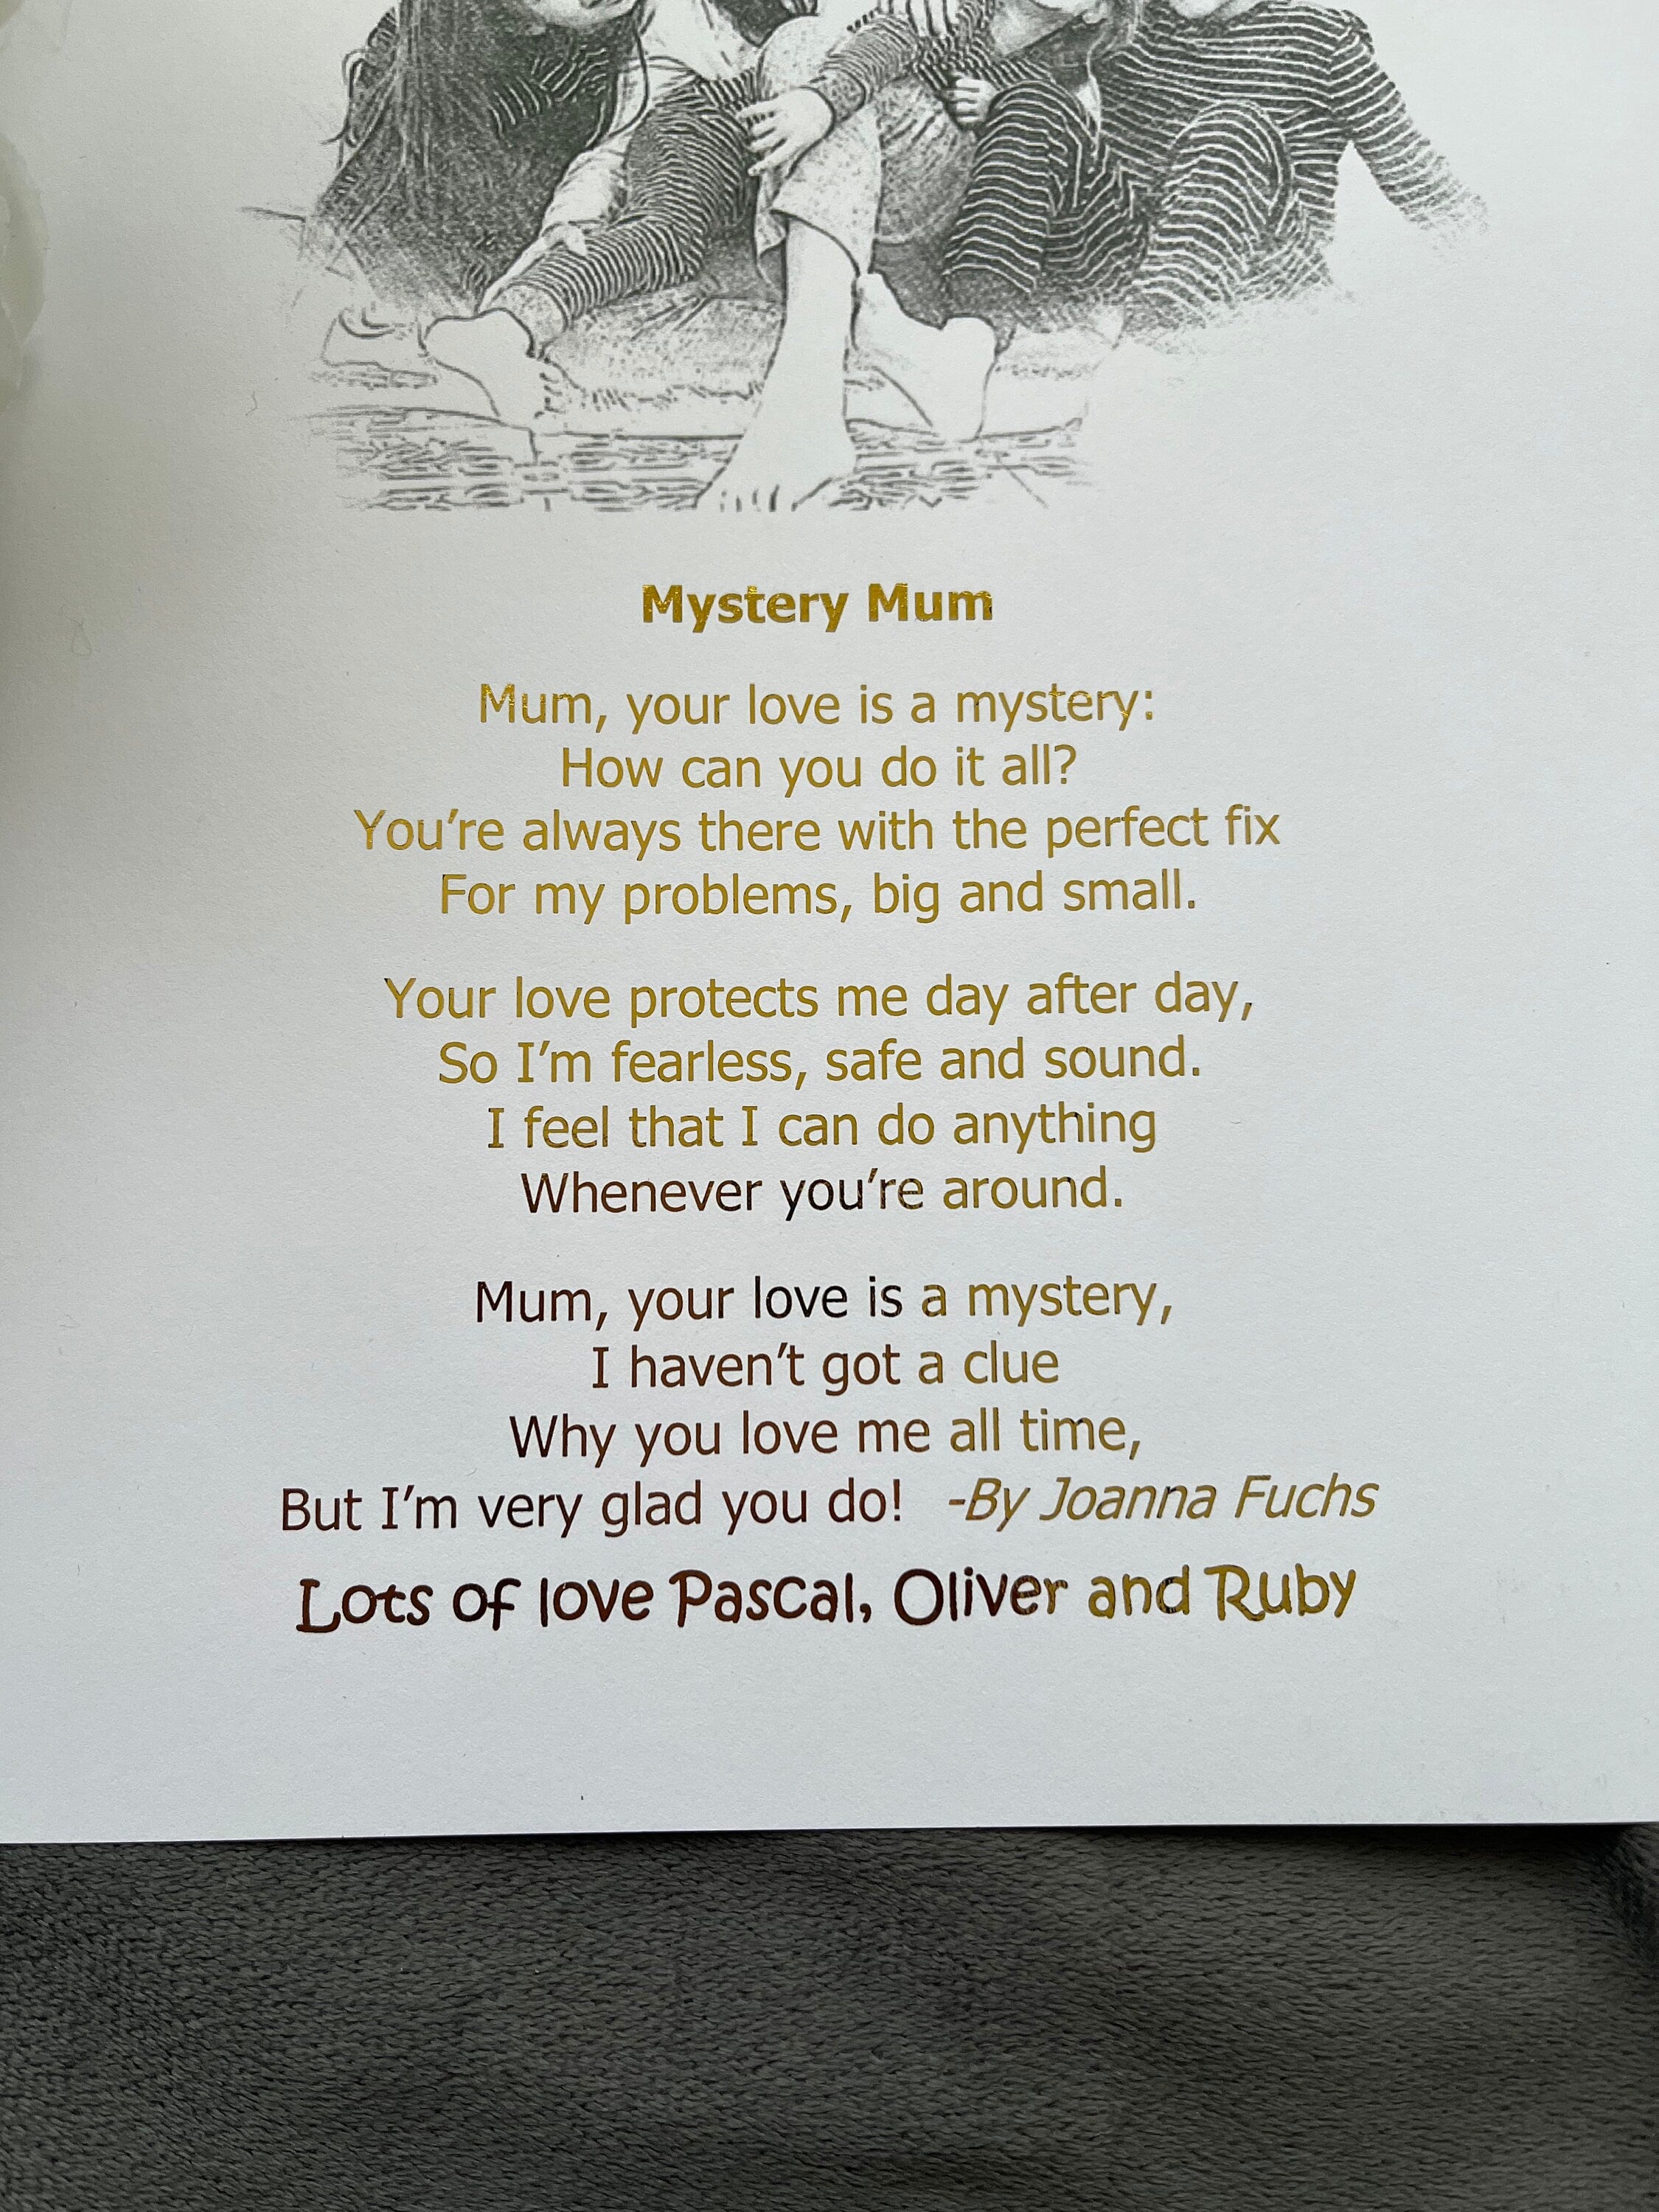 Mystery Mum
Mum, your love is a mystery:
How can you do it all?
You’re always there with the perfect fix
For my problems, big and small.
Your love protects me day after day,
So I’m fearless, safe and sound.
I feel that I can do anything
Whenever you’re around.
Mum, your love is a mystery,
I haven’t got a clue
Why you love me all time,
But I’m very glad you do! -By Joanna Fuchs
Lots of love Pascal, Oliver and Ruby